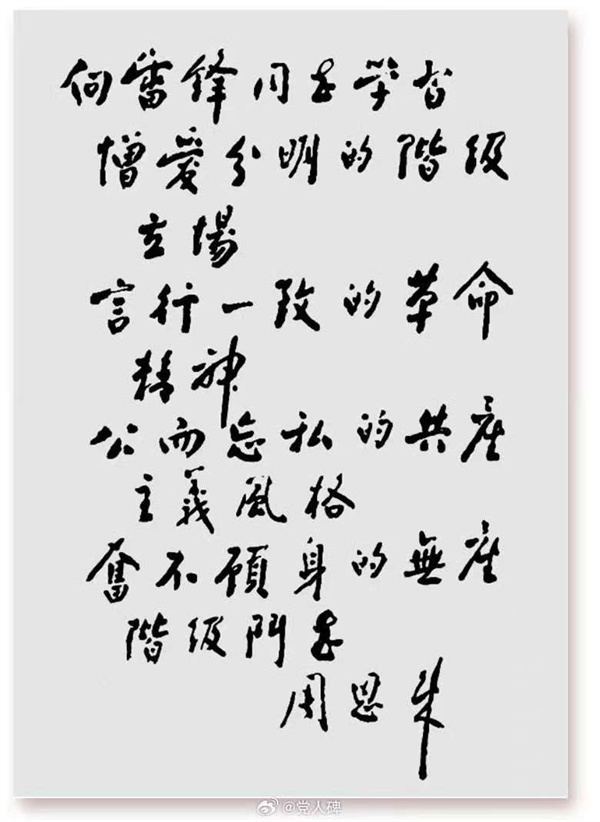 向雷锋同志学習
憎愛分明的階級
立場
言行一致的革命
精神
公而忘私的共産
主義風格
奮不顧身的無産
階級鬥志
周恩来
@党人碑